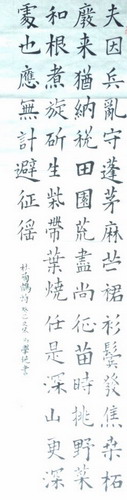 夫因兵亂守蓬茅麻苎裙衫鬢發焦桑柘
廢来猶納稅田園荒盡尚征苗時挑野菜
和根煮旋斫生柴帶葉燒任是深山更深
處也應無計避征徭
杜荀鶴詩